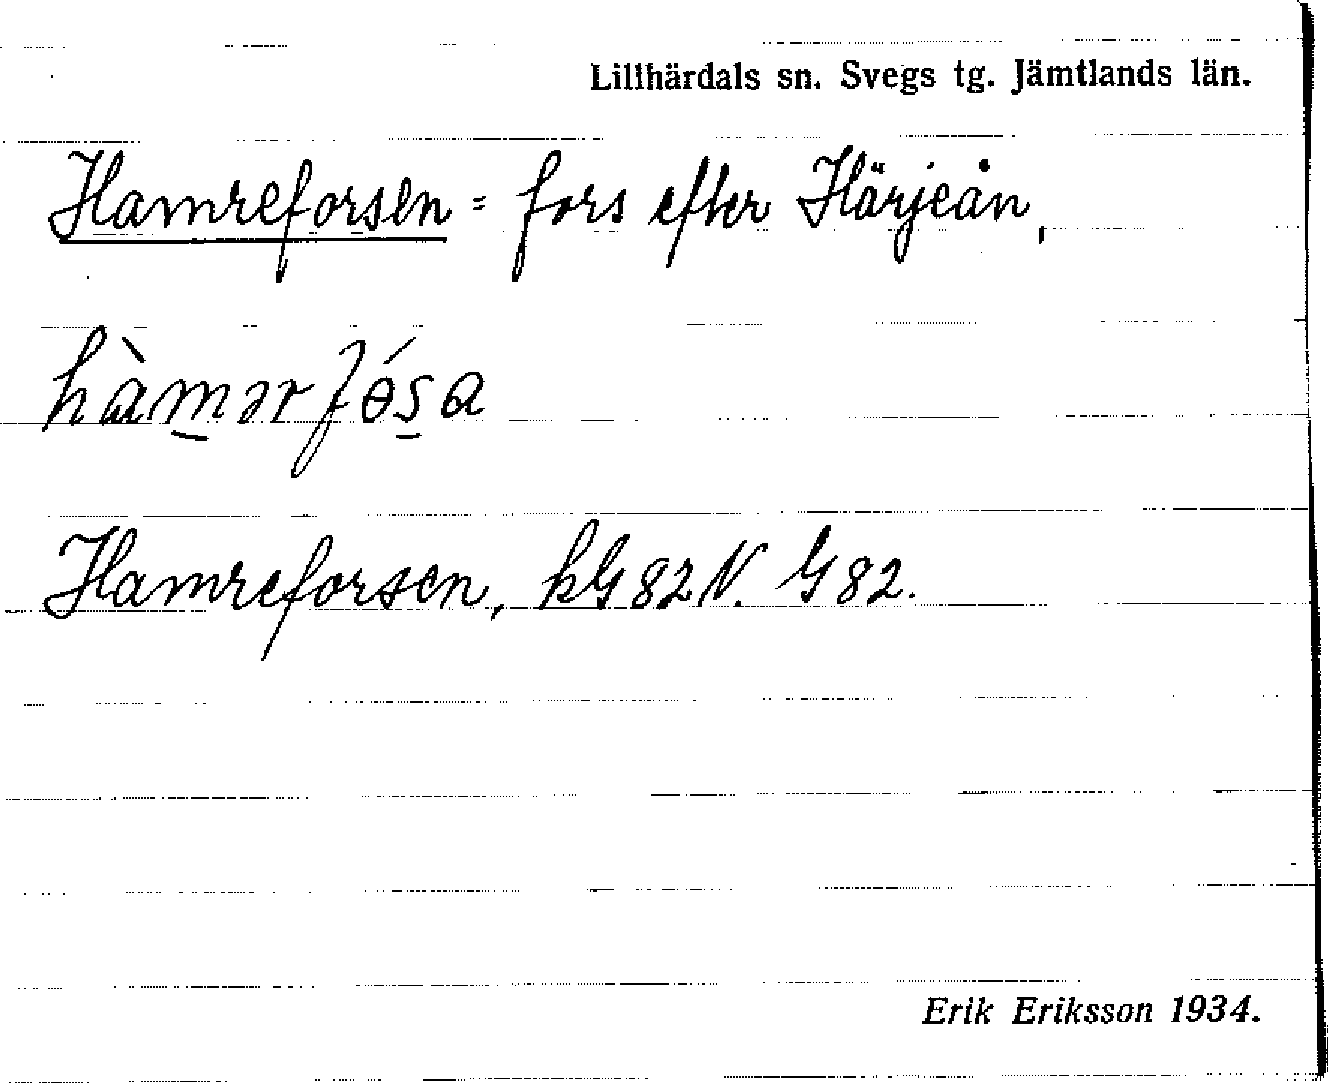 Lillhärdals sn. Svegs tg. Jämtlands län.
Hamreforsen = fors efter Härjeån,
hàmərfɵ́sa
Hamreforsen, hG 82 N. G 82.
Erik Eriksson 1934.